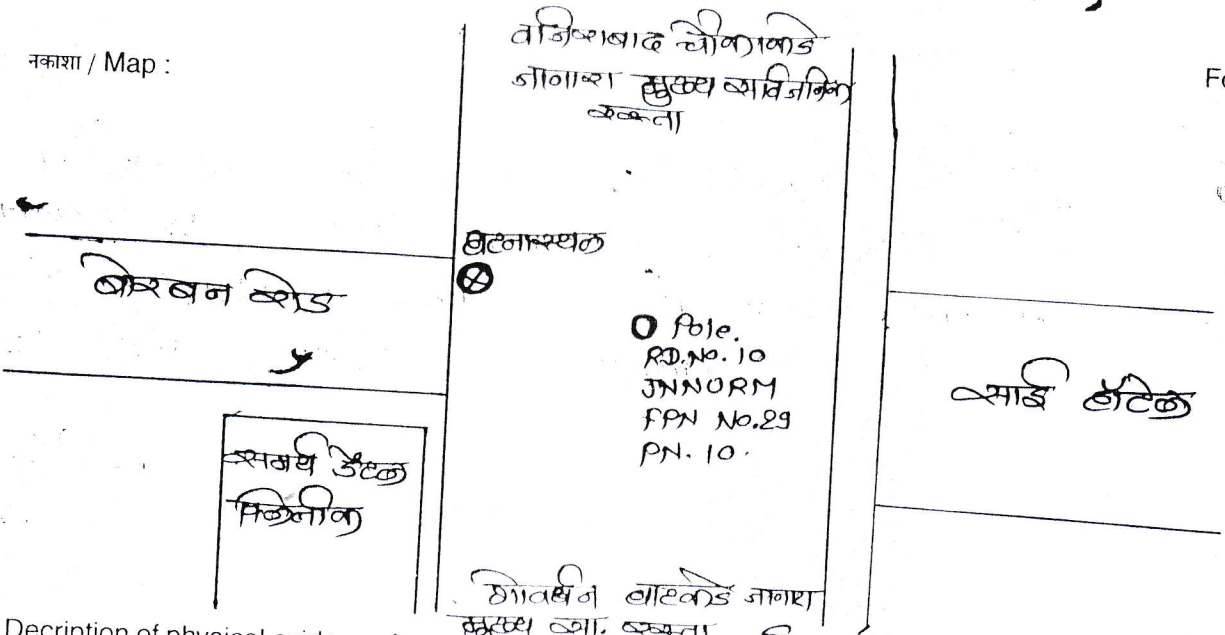 नकाशा / Map :
वजिराबाद चौकाकडे
जाणारा मुख्य सार्वजनिक
रस्ता
घटनास्थळ
बोरबन रोड
Pole.
RD.NO. 10
JNNURM
FPN No.29
PN. 10.
साई हॉटेल
समर्थ डेंटल
क्लिनीक
गोवर्धन घाटकडे जाणारा
मुख्य सा. रस्ता
Decription of physical